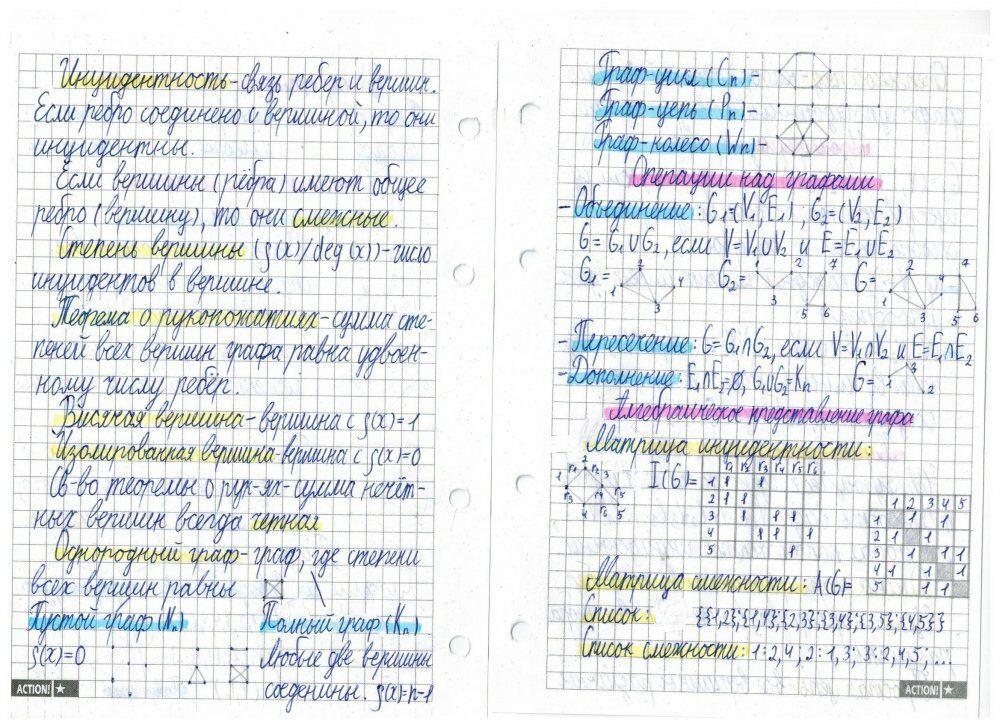 Инцидентность - связь ребер и вершин.
Если ребро соединено с вершиной, то они
инцидентны.
Если вершины (рёбра) имеют общее
ребро (вершину), то они смежные.
Степень вершины (ρ(x)/deg(x)) - число
инцидентов в вершине.
Теорема о рукопожатиях - сумма сте-
пеней всех вершин графа равна удвоен-
ному числу рёбер.
Висячая вершина - вершина с ρ(x)=1
Изолированная вершина - вершина с ρ(x)=0
Св-во, теоремы о рук-ях - сумма нечёт-
ных вершин всегда четная
Однородный граф - граф, где степени
всех вершин равны
Пустой граф (Nn)
ρ(x)=0
Полный граф (Kn)
Любые две вершины
соеденины. ρ(x)=n-1
ACTION!
Граф-цикл (Cn) -
Граф-цепь (Pn) -
Граф-колесо (Wn) -
Операции над графами
- Объединение: G1=(V1,E1), G2=(V2,E2)
G=G1∪G2, если V=V1∪V2 и E=E1∪E2
G1= 1 2 3 4 G2= 1 2 3 5 6 7 G= 1 2 3 4 5 6 7
- Пересечение: G=G1∩G2, если V=V1∩V2 и E=E1∩E2
- Дополнение: E1∩E2=∅, G1∪G2=Kn G= 1 3 2
Алгебраическое представление графа
Матрица инцидентности:
1 2 3 4 5 r1 r2 r3 r4 r5 r6
I(G)= r1 r2 r3 r4 r5 r6
1 1 1
2 1 1
3 1 1 1
4 1 1 1
5 1
Матрица смежности: A(G)=
1 2 3 4 5
1 1 1
2 1 1
3 1 1 1
4 1 1 1
5 1 1
Список: {{1,2};{1,4};{2,3};{3,4};{3,5};{4,5}}
Список смежности: 1:2,4, 2:1,3; 3:2,4,5; ...
ACTION!